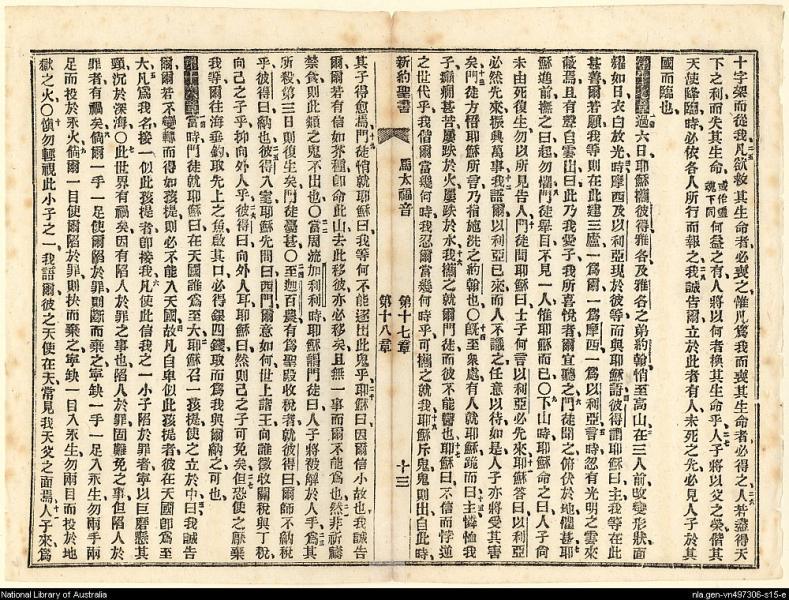 十字架而從我凡欲救其生命者必喪之惟凡爲我而喪其生命者必得之人若盡得天
下之利而失其生命或作靈魂下同何益之有人將以何者換其生命乎人子將以父之榮偕其
天使降臨時必依各人所行而報之我誠告爾立於此者有人未死之先必見人子於其
國而臨也
過六日耶穌攜彼得雅各及雅各之弟約翰悄至高山在三人前改變形狀面
耀如日衣白放光時摩西及以利亞現於彼等而與耶穌語彼得謂耶穌曰主我等在此
甚善爾若願我等則在此建三廬一爲爾一爲摩西一爲以利亞言時忽有光明之雲來
蔽焉且有聲自雲出曰此乃我愛子我所喜悅者爾宜聽之門徒聞之俯伏於地懼甚耶
穌進前撫之曰起勿懼門徒舉目不見一人惟耶穌而已○下山時耶穌命之曰人子尙
未由死復生勿以所見告人門徒問耶穌曰士子何言以利亞必先來耶穌答曰以利亞
必然先來振興萬事我語爾以利亞已來而人不識之任意以待如是人子亦將受其害
矣門徒方悟耶穌所言乃指施洗之約翰也○旣至衆處有人就耶穌跪而曰主憐恤我
子癲癇甚苦屢跌於火屢跌於水我攜之就爾門徒而彼不能醫也耶穌曰不信而悖逆
之世代乎我偕爾當幾何時我忍爾當幾何時乎可攜之就我耶穌斥鬼鬼則出自此時
新約聖書 馬太福音 第十七章 第十八章 十三
其子得愈焉門徒悄就耶穌曰我等何不能逐出此鬼乎耶穌曰因爾信小故也我誠告
爾爾若有信如芥種卽命此山去此移彼亦必移矣且無一事而爾不能爲也然非祈禱
禁食則此類之鬼不出也○當周流加利利時耶穌謂門徒曰人子將被解於人手爲其
所殺第三日則復生矣門徒憂甚○至迦百農有爲聖殿收稅者就彼得曰爾師不納稅
乎彼得曰納也彼得入室耶穌先問曰西門爾意如何世上諸王向誰徵收關稅與丁稅
向己之子乎抑向外人乎彼得曰向外人耳耶穌曰然則己之子可免矣但恐使之厭棄
我等爾往海垂釣取先上之魚啟其口必得銀四錢取而爲我與爾納之可也
當時門徒就耶穌曰在天國誰爲至大耶穌召一孩提使之立於中曰我誠告
爾爾若不變轉而得如孩提則必不能入天國故凡自卑似此孩提者彼在天國卽爲至
大凡爲我名接一似此孩提者卽接我凡使此信我之一小子陷於罪者寧以巨磨懸其
頸沉於深海○此世界有禍矣因有陷人於罪之事也陷人於罪固難免之事但陷人於
罪者有禍矣倘爾一手一足使爾陷於罪則斷而棄之寧缺一手一足入永生勿爾手兩
足而投於永火倘爾一目使爾陷於罪則抉而棄之寧缺一目入永生勿兩目而投於地
獄之火○愼勿輕視此小子之一我語爾彼之天使在天常見我天父之面焉人子來爲
National Library of Australia
nla.gen-vn497306-s15-e